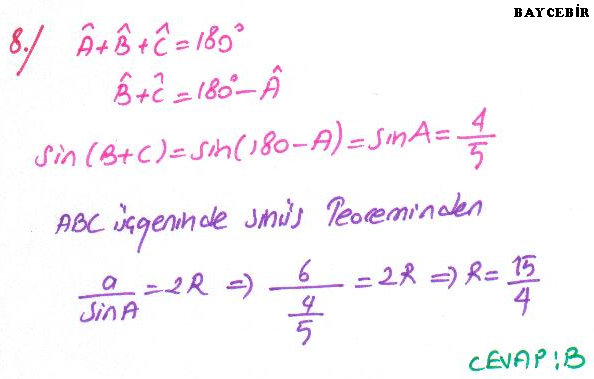 BAYCEBİR
8./ Â+B̂+Ĉ=180°
B̂+Ĉ=180°-Â
sin(B+C)=sin(180-A)=sinA=4/5
ABC üçgeninde sinüs Teoreminden
a/sinA=2R ⇒ 6/(4/5)=2R ⇒ R=15/4
CEVAP:B